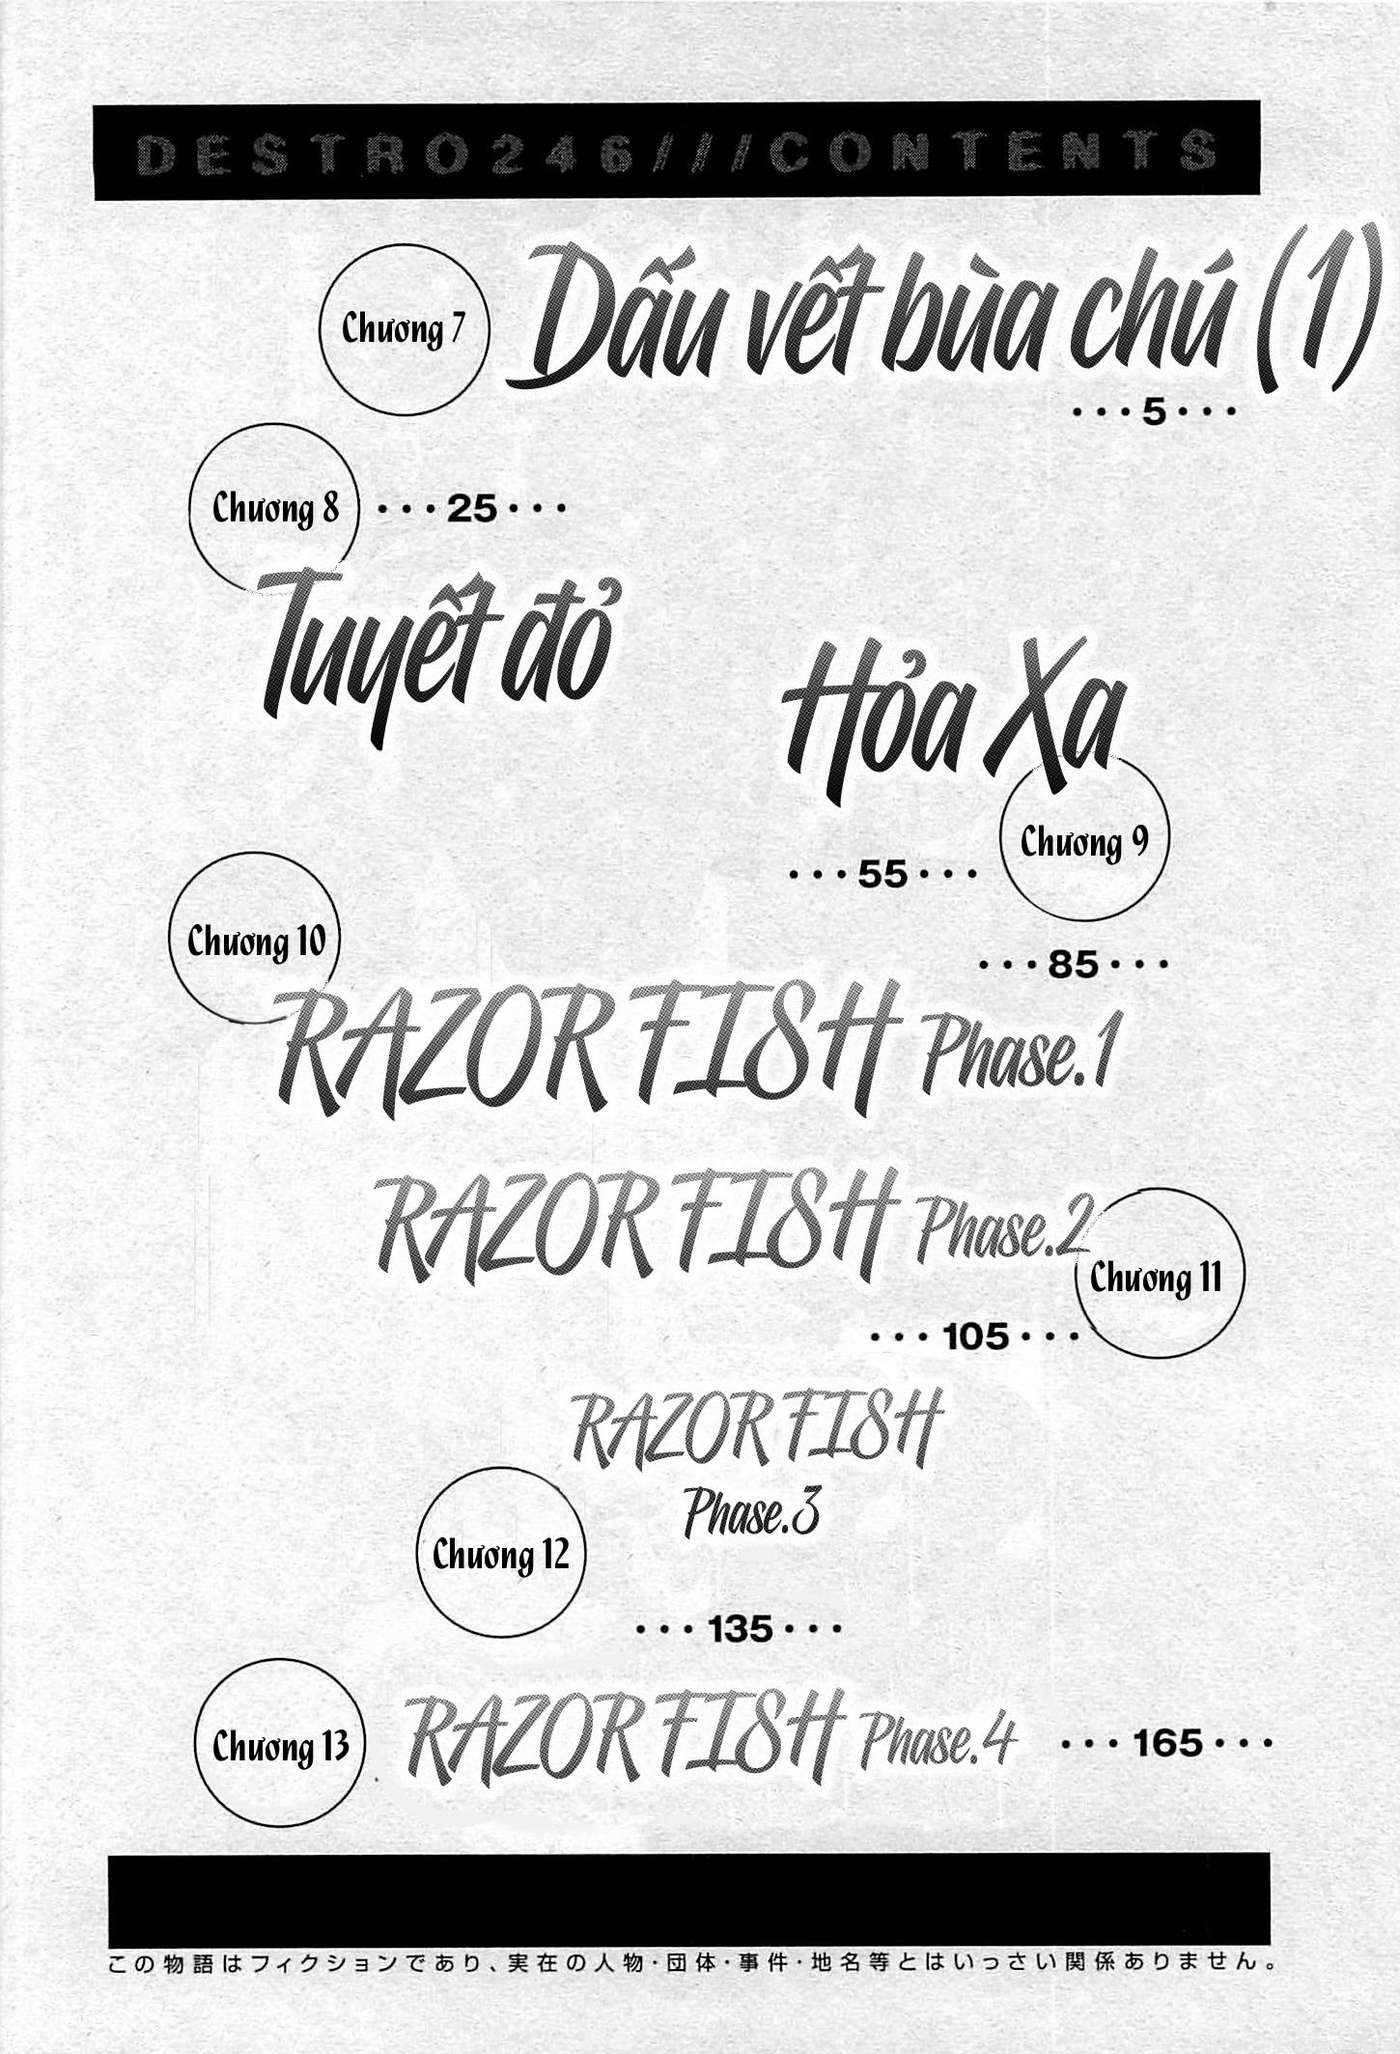 DESTRO246///CONTENTS
Chương 7
Dấu vết bùa chú (1)
•••5•••
Chương 8
•••25•••
Tuyết đỏ
Hỏa Xa
Chương 9
•••55•••
Chương 10
•••85•••
RAZOR FISH Phase.1
RAZOR FISH Phase.2
Chương 11
•••105•••
RAZOR FISH
Phase.3
Chương 12
•••135•••
Chương 13
RAZOR FISH Phase.4
•••165•••
この物語はフィクションであり、実在の人物・団体・事件・地名等とはいっさい関係ありません。